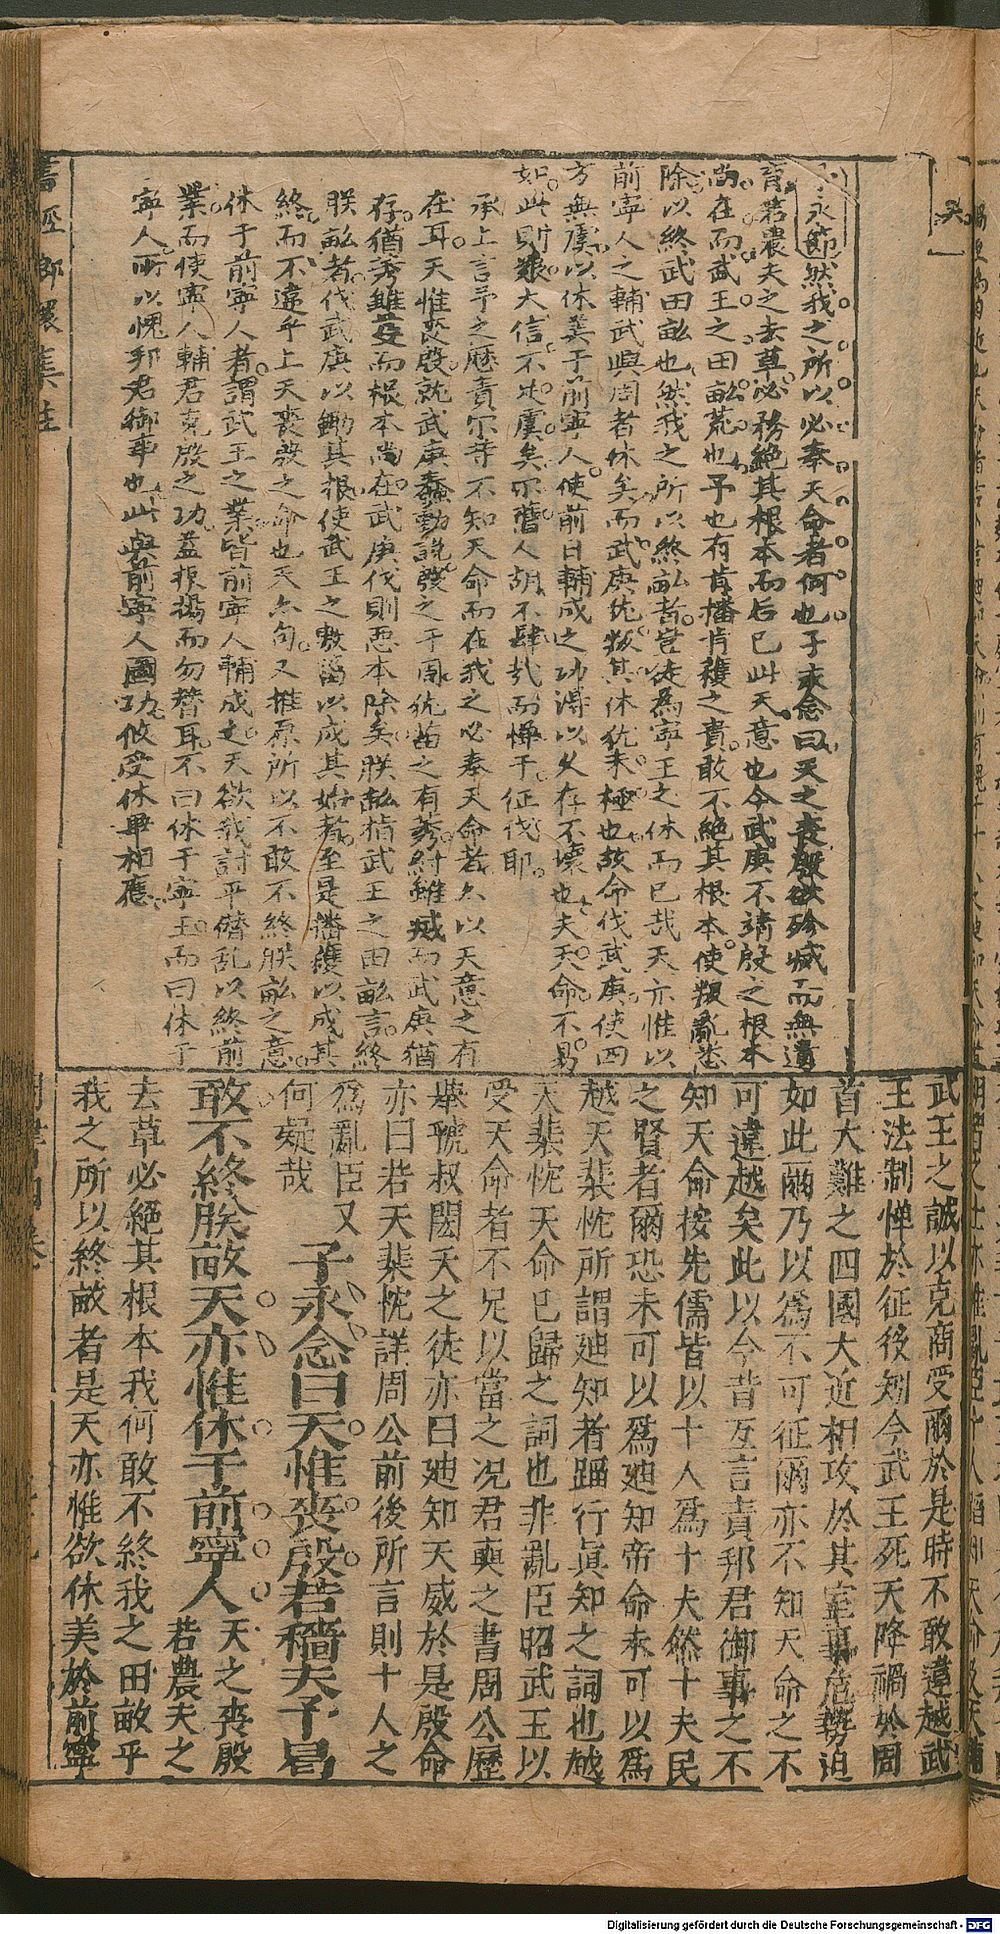 予永節然我之所以必奉天命者何也予永念曰天之喪殷欲殄滅而無遺
育若農夫之去草必務絕其根本而后已此天意也今武庚不靖殷之根本
尚在而武王之田畝荒也予也有肯播肯穫之責敢不絕其根本使叛乱悉
除以終武田畝也然我之所以終畝者豈徒為寧王之休而已哉天亦惟以
前寧人之輔武興周者休矣而武庚倡叛其休犹未極也故命伐武庚使四
方無虞以休美于前寧人使前日輔成之功得以久存不壞也夫天命不易
如此則大信不足虞矣尔舊人胡不肆哉而憚于征伐耶
承上言予之歷責尔等不知天命而在我之必奉天命者久以天意之有
在耳天惟喪殷就武庚蠢動說發之于周犹苗之有莠紂雖滅而武庚猶
存猶莠雖芟而根本尚在武庚伐則惡本除矣朕畝指武王之田畝言終
朕畝者伐武庚以鋤其根使武王之敷菑以成其始者至是播穫以成其
終而不違乎上天喪殷之命也天亦句又推原所以不敢不終朕畝之意
休于前寧人者謂武王之業皆前寧人輔成之天欲我討平僭乱以終前
業而使寧人輔君克殷之功益振揚而勿替耳不曰休于寧王而曰休于
寧人所以愧邦君御事也此與前寧人圖功攸受休畢相應
武王之誠以克商受爾於是時不敢違越武
王法制憚於征役矧今武王死天降禍於周
首大難之四國大近相攻於其室事危勢迫
如此爾乃以為不可征爾亦不知天命之不
可違越矣此以今昔互言責邦君御事之不
知天命按先儒皆以十人為十夫然十夫民
之賢者爾恐未可以為廸知帝命未可以為
越天棐忱所謂廸知者蹈行眞知之詞也越
天棐忱天命已歸之詞也非亂臣昭武王以
受天命者不足以當之況君奭之書周公歷
舉虢叔閎夭之徒亦曰廸知天威於是殷命
亦曰若天棐忱詳周公前後所言則十人之
為亂臣又
何疑哉
予永念曰天惟喪殷若穡夫予曷
敢不終朕畝天亦惟休于前寧人
天之喪殷
若農夫之
去草必絕其根本我何敢不終我之田畝乎
我之所以終畝者是天亦惟欲休美於前寧
Digitalisierung gefördert durch die Deutsche Forschungsgemeinschaft - DFG